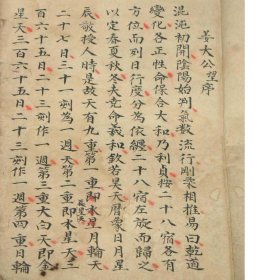 姜太公望序
混沌初開陰陽始判氣數流行剛柔相推易曰乾道
變化各正性命保合大和乃利貞按二十八宿各有
方位而列日行度分為依纏二十八宿左旋而歸之
以定春夏秋冬夫堯命羲和欽若昊天曆象日月星
辰敬授人時是故天有九重第一重即水星月輪天
二十七日三十一刻為一週天第二重即水星天三
百六十五日二十三刻作一週第三重大白天即金
星天三百六十五日二十三刻作一週第四重日輪